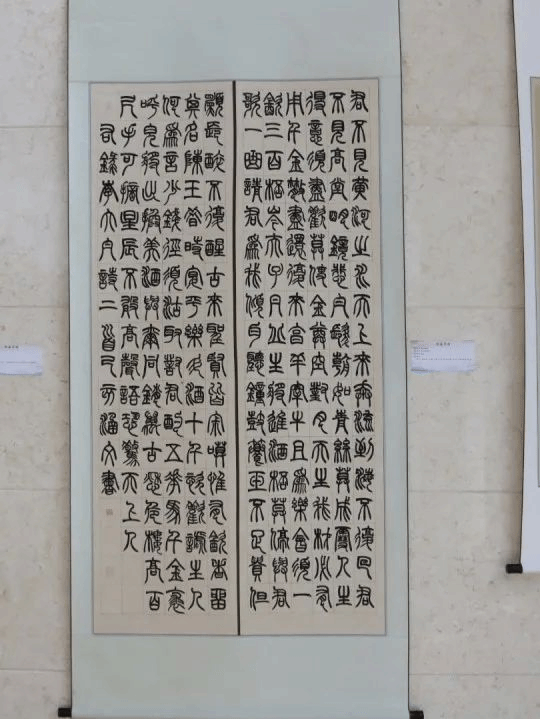 君不見黃河之水天上來奔流到海不復回君
不見高堂明鏡悲白髮朝如青絲暮成雪人生
得意須盡歡莫使金尊空對月天生我材必有
用千金散盡還復來烹羊宰牛且為樂會須一
飲三百杯岑夫子丹丘生將進酒杯莫停與君
歌一曲請君為我傾耳聽鐘鼓饌玉不足貴但
願長醉不復醒古來聖賢皆寂寞惟有飲者留
其名陳王昔時宴平樂斗酒十千恣歡謔主人
何為言少錢徑須沽取對君酌五花馬千金裘
呼兒將出換美酒與爾同銷萬古愁危樓高百
尺手可摘星辰不敢高聲語恐驚天上人
右錄李太白詩二首潘文書